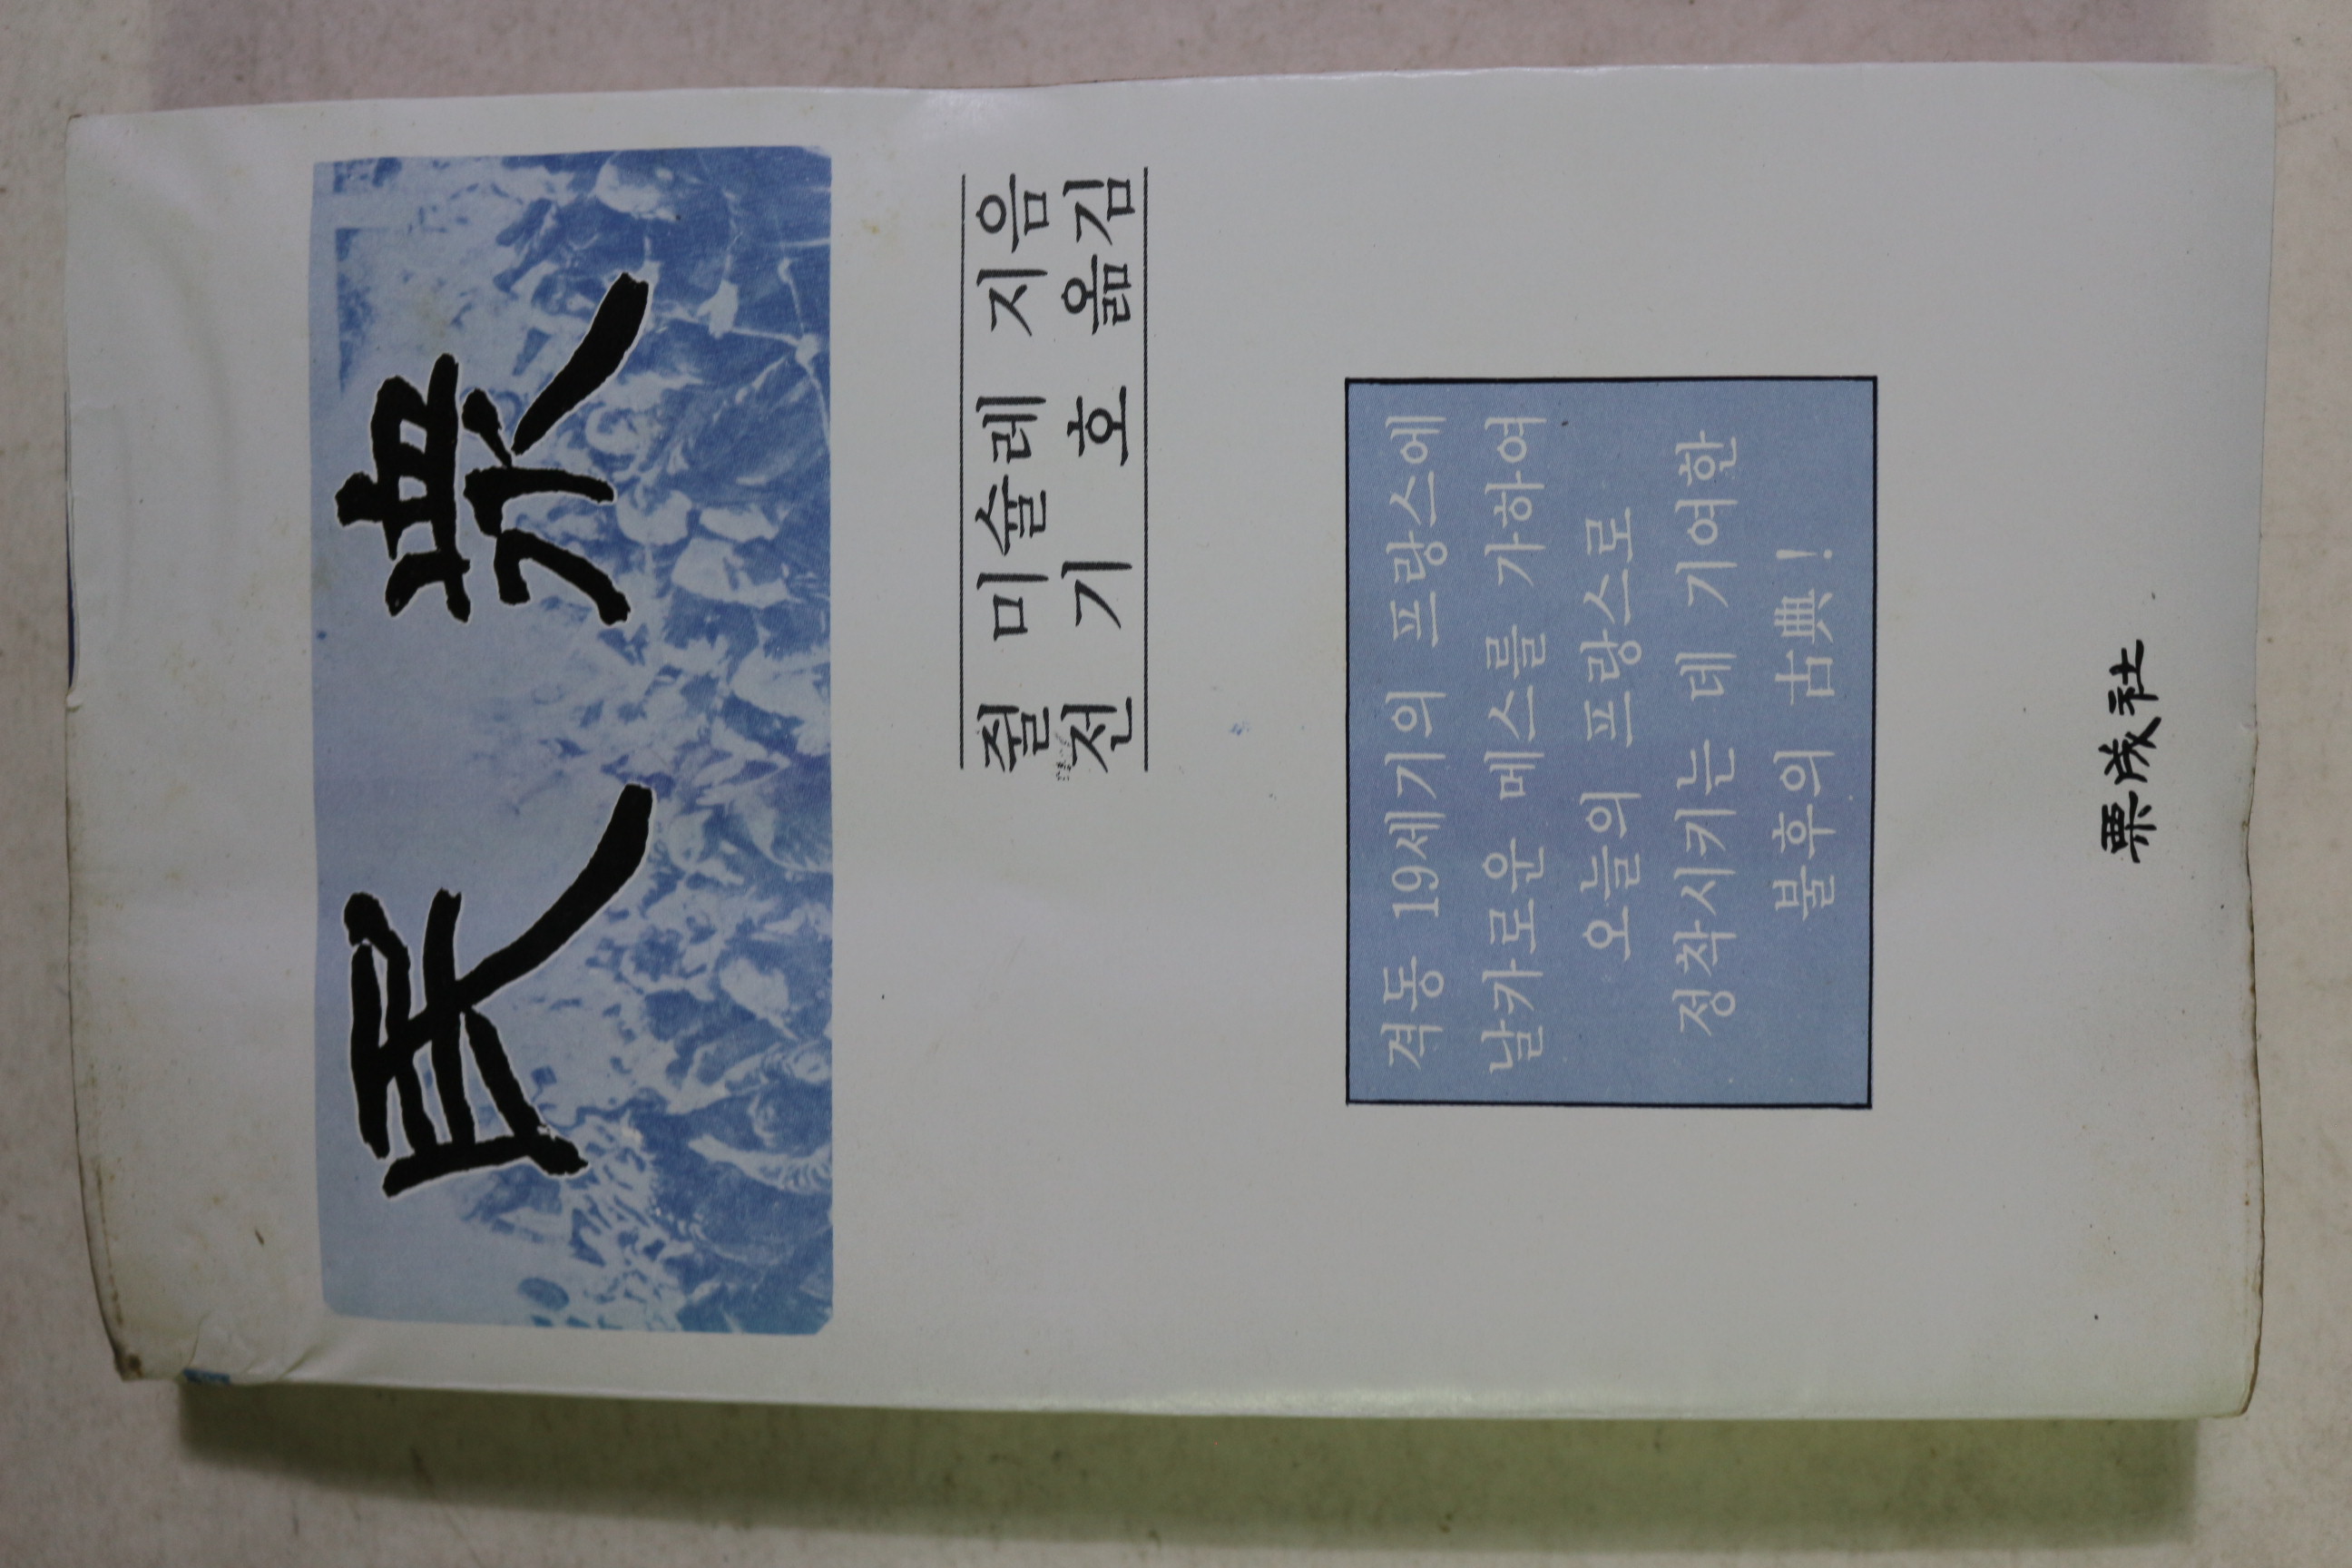 民衆
쥘 미슐레 지음
전기호 옮김
격동 19세기의 프랑스에
날카로운 메스를 가하여
오늘의 프랑스로
정착시키는 데 기여한
불후의 古典!
栗成社